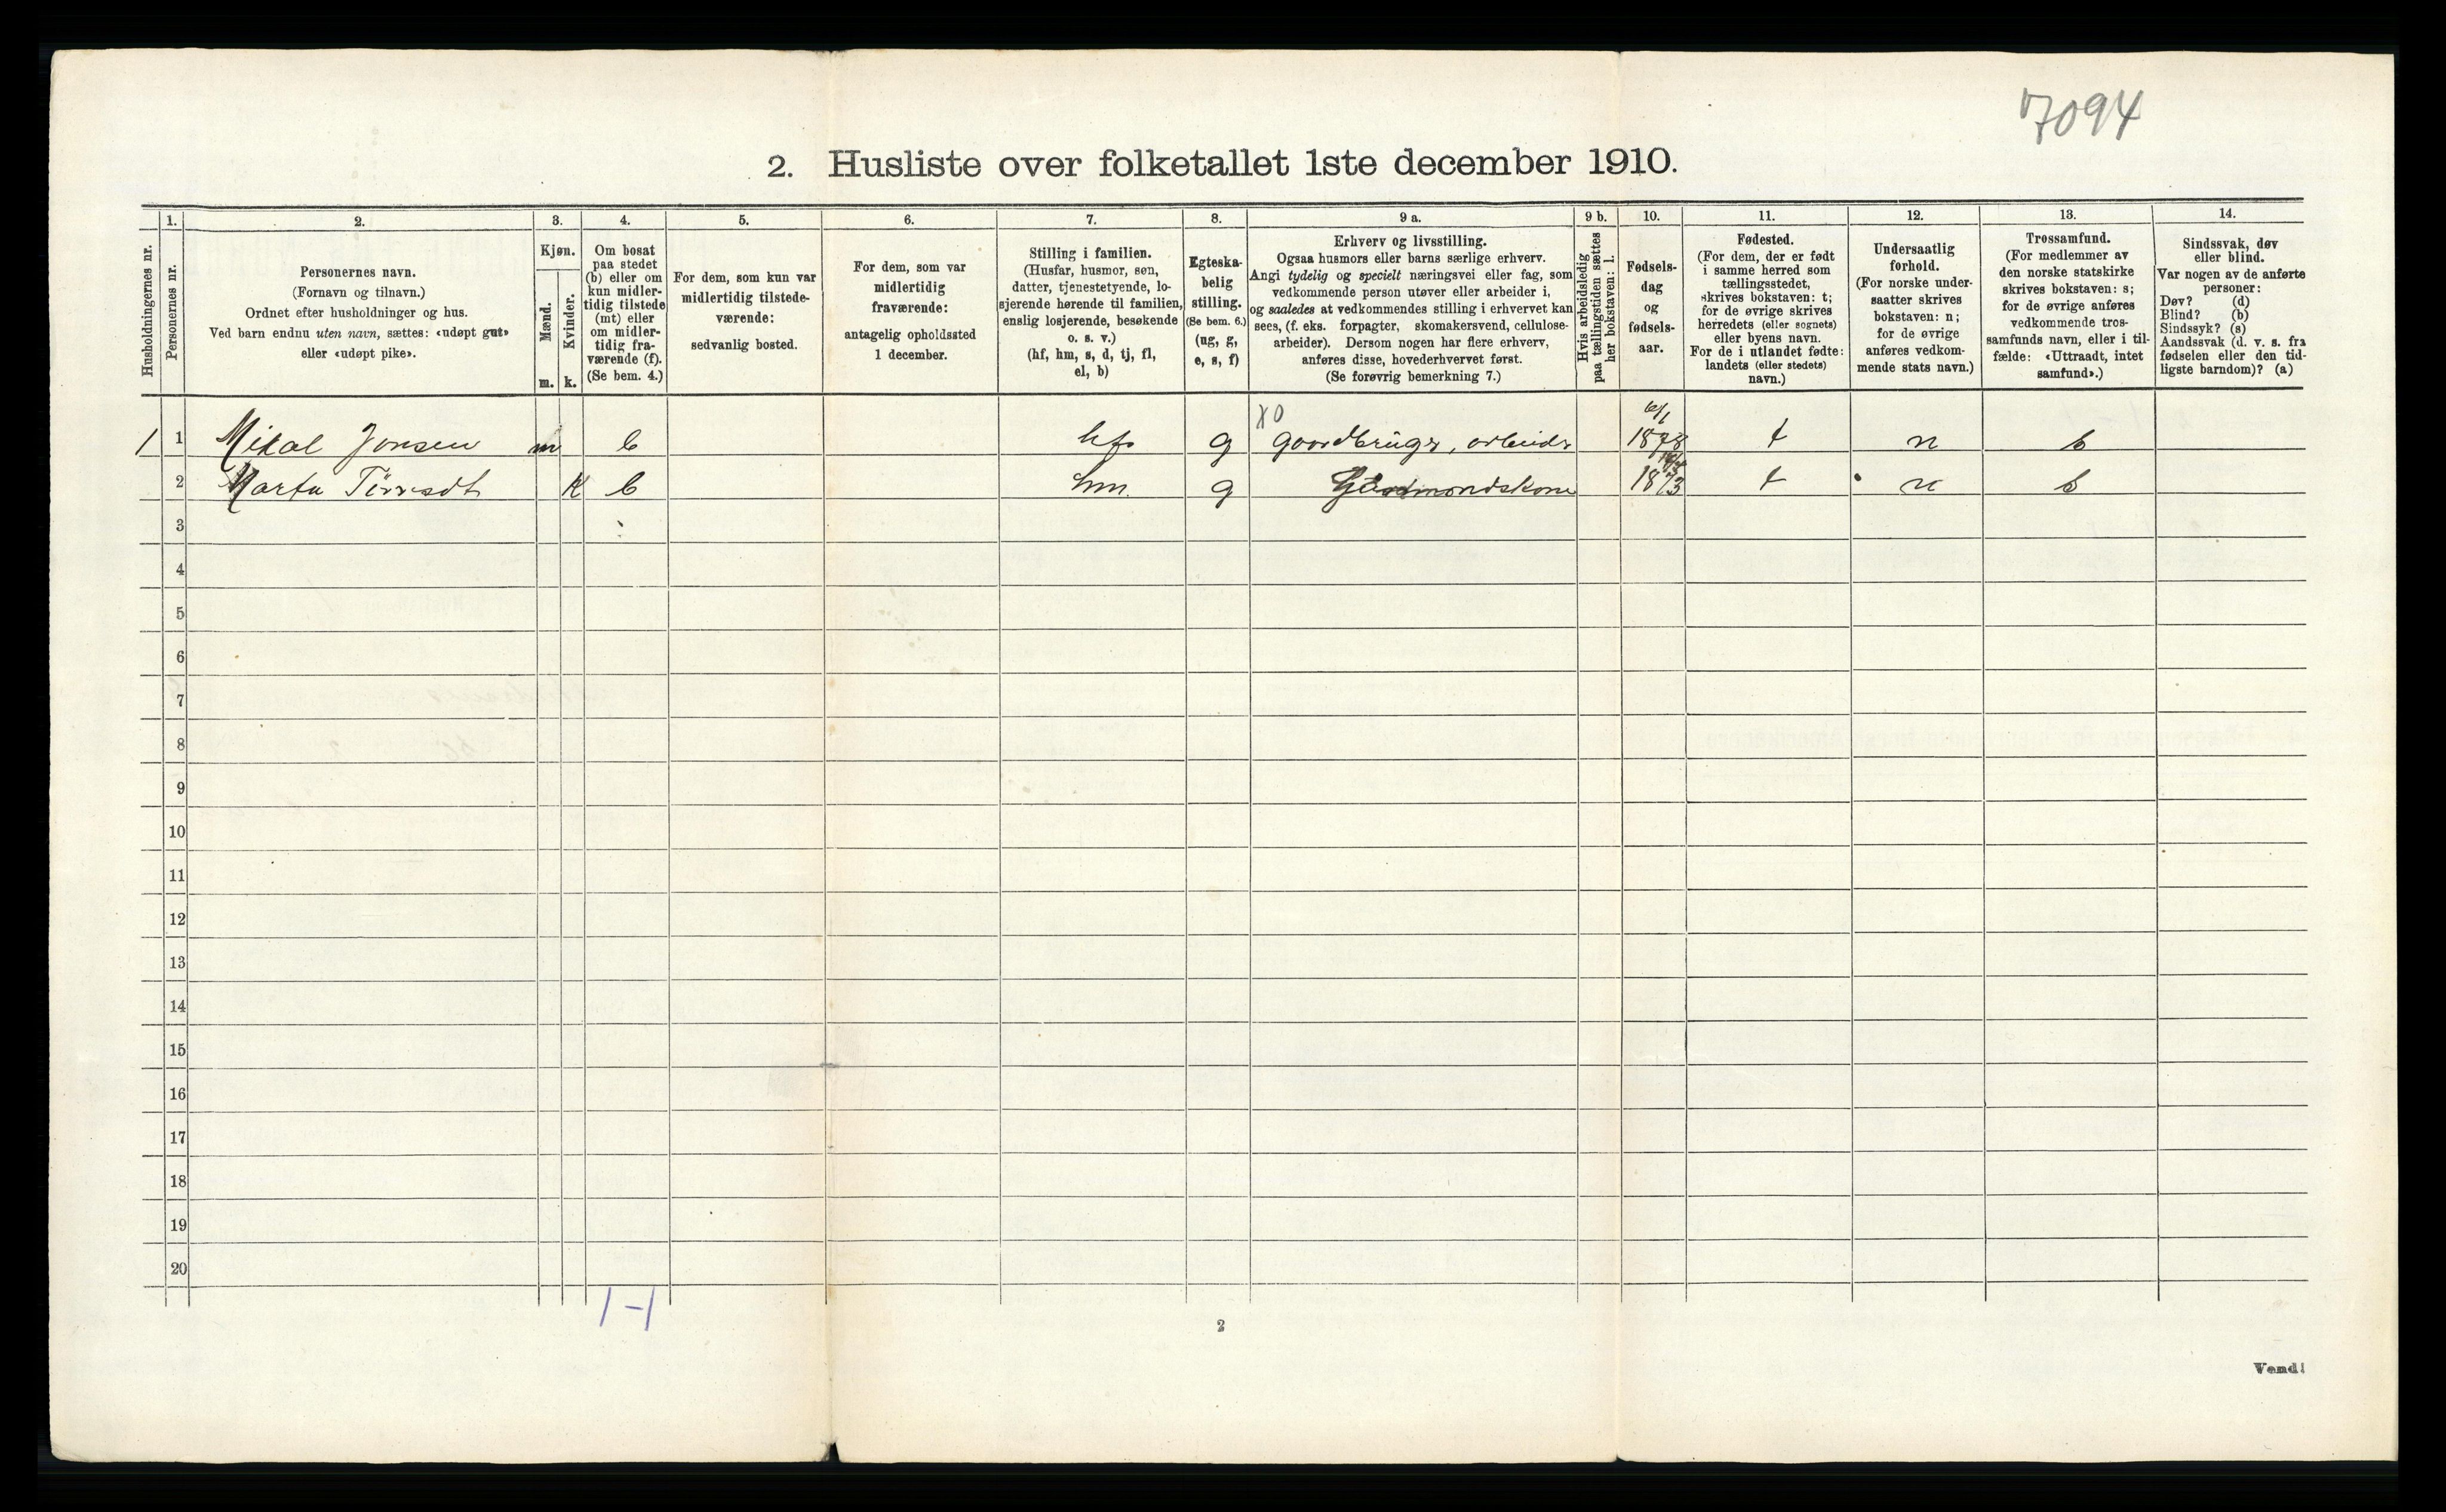 7094
2. Husliste over folketallet 1ste december 1910.
Husholdningernes nr.
1.
Personernes nr.
2.
Personernes navn.
(Fornavn og tilnavn.)
Ordnet efter husholdninger og hus.
Ved barn endnu uten navn, sættes: «udøpt gut»
eller «udøpt pike».
3.
Kjøn.
Mænd.
Kvinder.
m. k.
4.
Om bosat
paa stedet
(b) eller om
kun midler-
tidig tilstede
(mt) eller
om midler-
tidig fra-
værende (f).
(Se bem. 4.)
5.
For dem, som kun var
midlertidig tilstede-
værende:
sedvanlig bosted.
6.
For dem, som var
midlertidig
fraværende:
antagelig opholdssted
1 december.
7.
Stilling i familien.
(Husfar, husmor, søn,
datter, tjenestetyende, lo-
sjerende hørende til familien,
enslig losjerende, besøkende
o. s. v.)
(hf, hm, s, d, tj, fl,
el, b)
8.
Egteska-
belig
stilling.
(Se bem. 6.)
(ug, g,
e, s, f)
9 a.
Erhverv og livsstilling.
Ogsaa husmors eller barns særlige erhverv.
Angi tydelig og specielt næringsvei eller fag, som
vedkommende person utøver eller arbeider i,
og saaledes at vedkommendes stilling i erhvervet kan
sees, (f. eks. forpagter, skomakersvend, cellulose-
arbeider). Dersom nogen har flere erhverv,
anføres disse, hovederhvervet først.
(Se forøvrig bemerkning 7.)
9 b.
Hvis arbeidsledig
paa tællingstiden sættes
her bokstaven: l.
10.
Fødsels-
dag
og
fødsels-
aar.
11.
Fødested.
(For dem, der er født
i samme herred som
tællingsstedet,
skrives bokstaven: t;
for de øvrige skrives
herredets (eller sognets)
eller byens navn.
For de i utlandet fødte:
landets (eller stedets)
navn.)
12.
Undersaatlig
forhold.
(For norske under-
saatter skrives
bokstaven: n;
for de øvrige
anføres vedkom-
mende stats navn.)
13.
Trossamfund.
(For medlemmer av
den norske statskirke
skrives bokstaven: s;
for de øvrige anføres
vedkommende tros-
samfunds navn, eller i til-
fælde: «Uttraadt, intet
samfund».)
14.
Sindssvak, døv
eller blind.
Var nogen av de anførte
personer:
Døv? (d)
Blind? (b)
Sindssyk? (s)
Aandssvak (d. v. s. fra
fødselen eller den tid-
ligste barndom)? (a)
X0
1 1 Mikal Jonsen m b hf g gaardbruger, arbeider 6/1 1878 t n s
2 Marta K b hm g 1873 t n s
3
4
5
6
7
8
9
10
11
12
13
14
15
16
17
18
19
20
1-1
2
Vend!